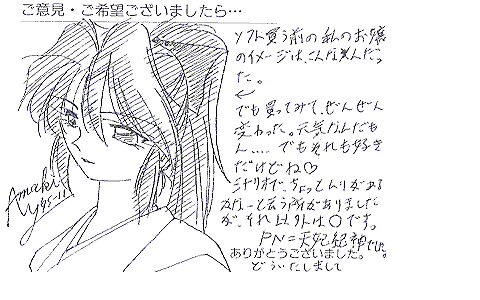 ご意見・ご希望ございましたら…
ソフト買う前の私のお嬢
のイメージは、こんな美人だっ
た。
でも買ってみて、ぜんぜん
変わった。元気なんだも
ん.... でもそれも好き
だけどね♡
シナリオで、ちょっとムリがある
かなーと云う所がありました
が、それ以外は〇ですっ。
PN=天妃紀神
ありがとうございました。
どういたしまして